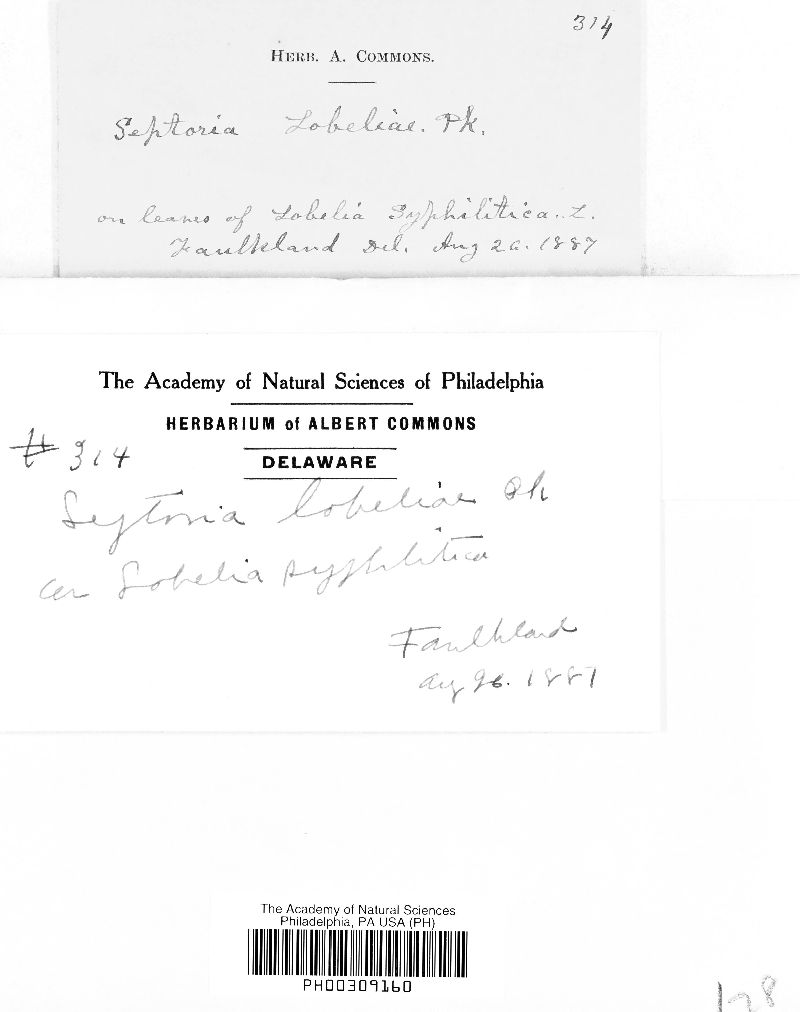 314
HERB. A. COMMONS.
Septoria Lobeliae. Pk.
on leaves of Lobelia Syphilitica. L.
Faulkland Del. Aug 26. 1887
The Academy of Natural Sciences of Philadelphia
HERBARIUM of ALBERT COMMONS
# 314
DELAWARE
Septoria lobeliae Pk
on Lobelia syphilitica
Faulkland
Aug 26. 1887
The Academy of Natural Sciences
Philadelphia, PA USA (PH)
PH00309160
128